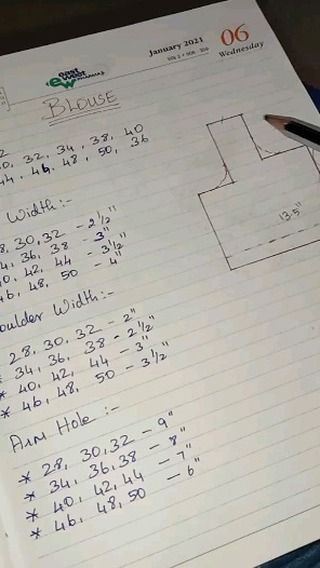 east west
ew
January 2021
06
Wednesday
BLOUSE
30, 32, 34, 38, 40
44, 46, 48, 50, 36
Width:-
28, 30, 32 - 2 1/2"
34, 36, 38 - 3"
40, 42, 44 - 3 1/2"
46, 48, 50 - 4"
Shoulder Width:-
28, 30, 32 - 2"
* 34, 36, 38 - 2 1/2"
* 40, 42, 44 - 3"
* 46, 48, 50 - 3 1/2"
ARM HOLE :-
* 28, 30, 32 - 9"
* 34, 36, 38 - 8"
* 40, 42, 44 - 7"
* 46, 48, 50 - 6"
13.5"